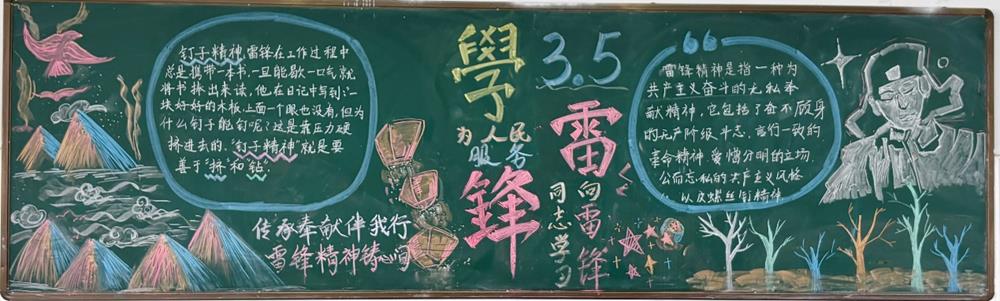 钉子精神,雷锋在工作过程中
总是携带一本书,一旦能歇一口气,就
将书拣出来读,他在日记中写到:"一
块好好的木板,上面一个眼也没有,但为
什么钉子能钉呢?这是靠压力硬
挤进去的."钉子精神"就是要
善于"挤"和"钻".
传承奉献伴我行
雷锋精神铸心间
學
為人民
服务
鋒
3.5
雷
向雷锋
同志学习
雷锋精神是指一种为
共产主义奋斗的无私奉
献精神,它包括了奋不顾身
的无产阶级斗志,言行一致的
革命精神,爱憎分明的立场,
公而忘私的共产主义风格
以及螺丝钉精神